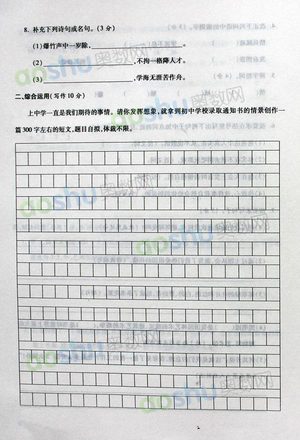 8. 补充下列诗句或名句。(3 分)
(1)爆竹声中一岁除,。
(2),不拘一格降人才。
(3),学海无涯苦作舟。
二、综合运用(写作 10 分)
上中学一直是我们期待的事情。请你发挥想象,就拿到初中学校录取通知书的情景创作一
篇300字左右的短文,题目自拟,体裁不限。
aoshu奥数网
aoshu奥数网
aoshu奥数网
aoshu奥数网